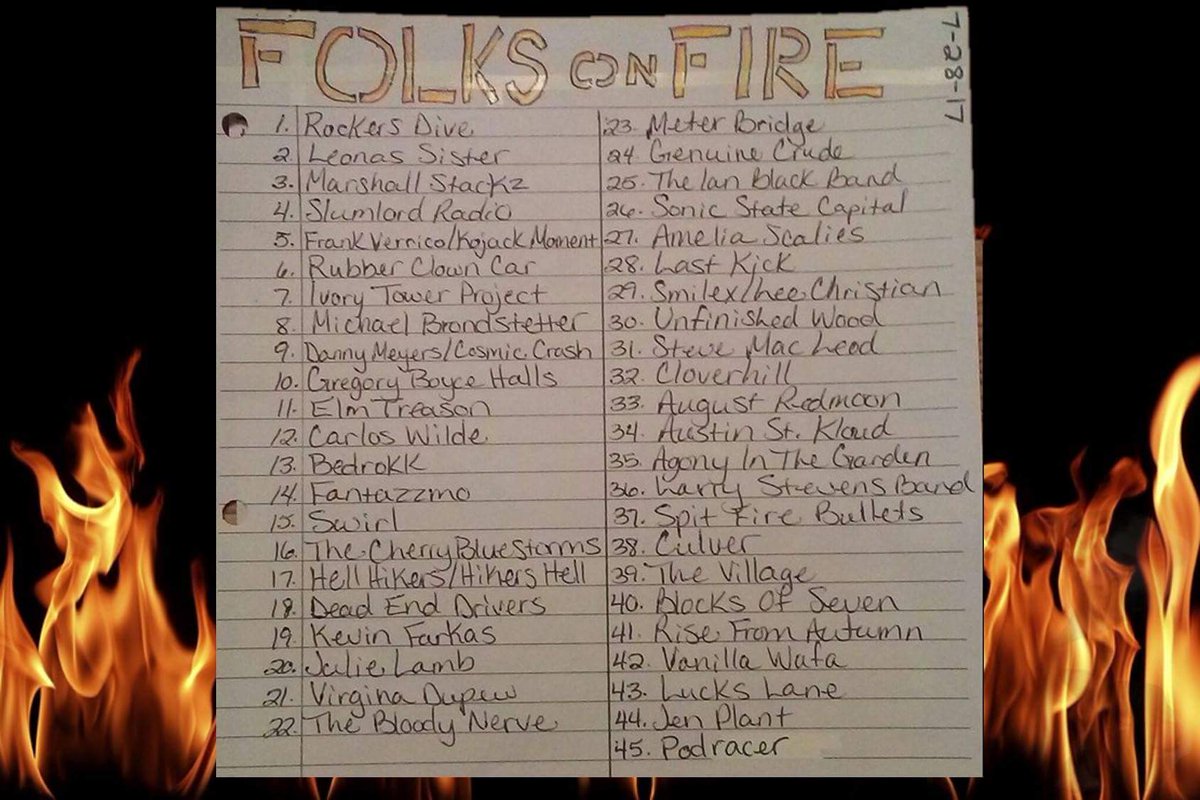 FOLKS ON FIRE
7-28-17
1. Rockers Dive
2. Leonas Sister
3. Marshall Stackz
4. Slumlord Radio
5. Frank Verrico/Kojack Moment
6. Rubber Clown Car
7. Ivory Tower Project
8. Michael Brondstetter
9. Danny Meyers/Cosmic Crash
10. Gregory Boyce Halls
11. Elm Treason
12. Carlos Wilde
13. Bedrokk
14. Fantazzmo
15. Swirl
16. The Cherry Blue Storms
17. Hell Hikers/Hikers Hell
18. Dead End Drivers
19. Kevin Farkas
20. Julie Lamb
21. Virgina Dupew
22. The Bloody Nerve
23. Meter Bridge
24 Genuine Crude
25. The Ian Black Band
26. Sonic State Capital
27. Amelia Scalies
28. Last Kick
29. Smilex/Lee Christian
30. Unfinished Wood
31. Steve Mac Leod
32. Cloverhill
33. August Redmoon
34. Austin St. Kloud
35. Agony In The Garden
36. Larry Stevens Band
37. Spit Fire Bullets
38. Culver
39. The Village
40. Blocks Of Seven
41. Rise From Autumn
42. Vanilla Wafa
43. Lucks Lane
44. Jen Plant
45. Podracer